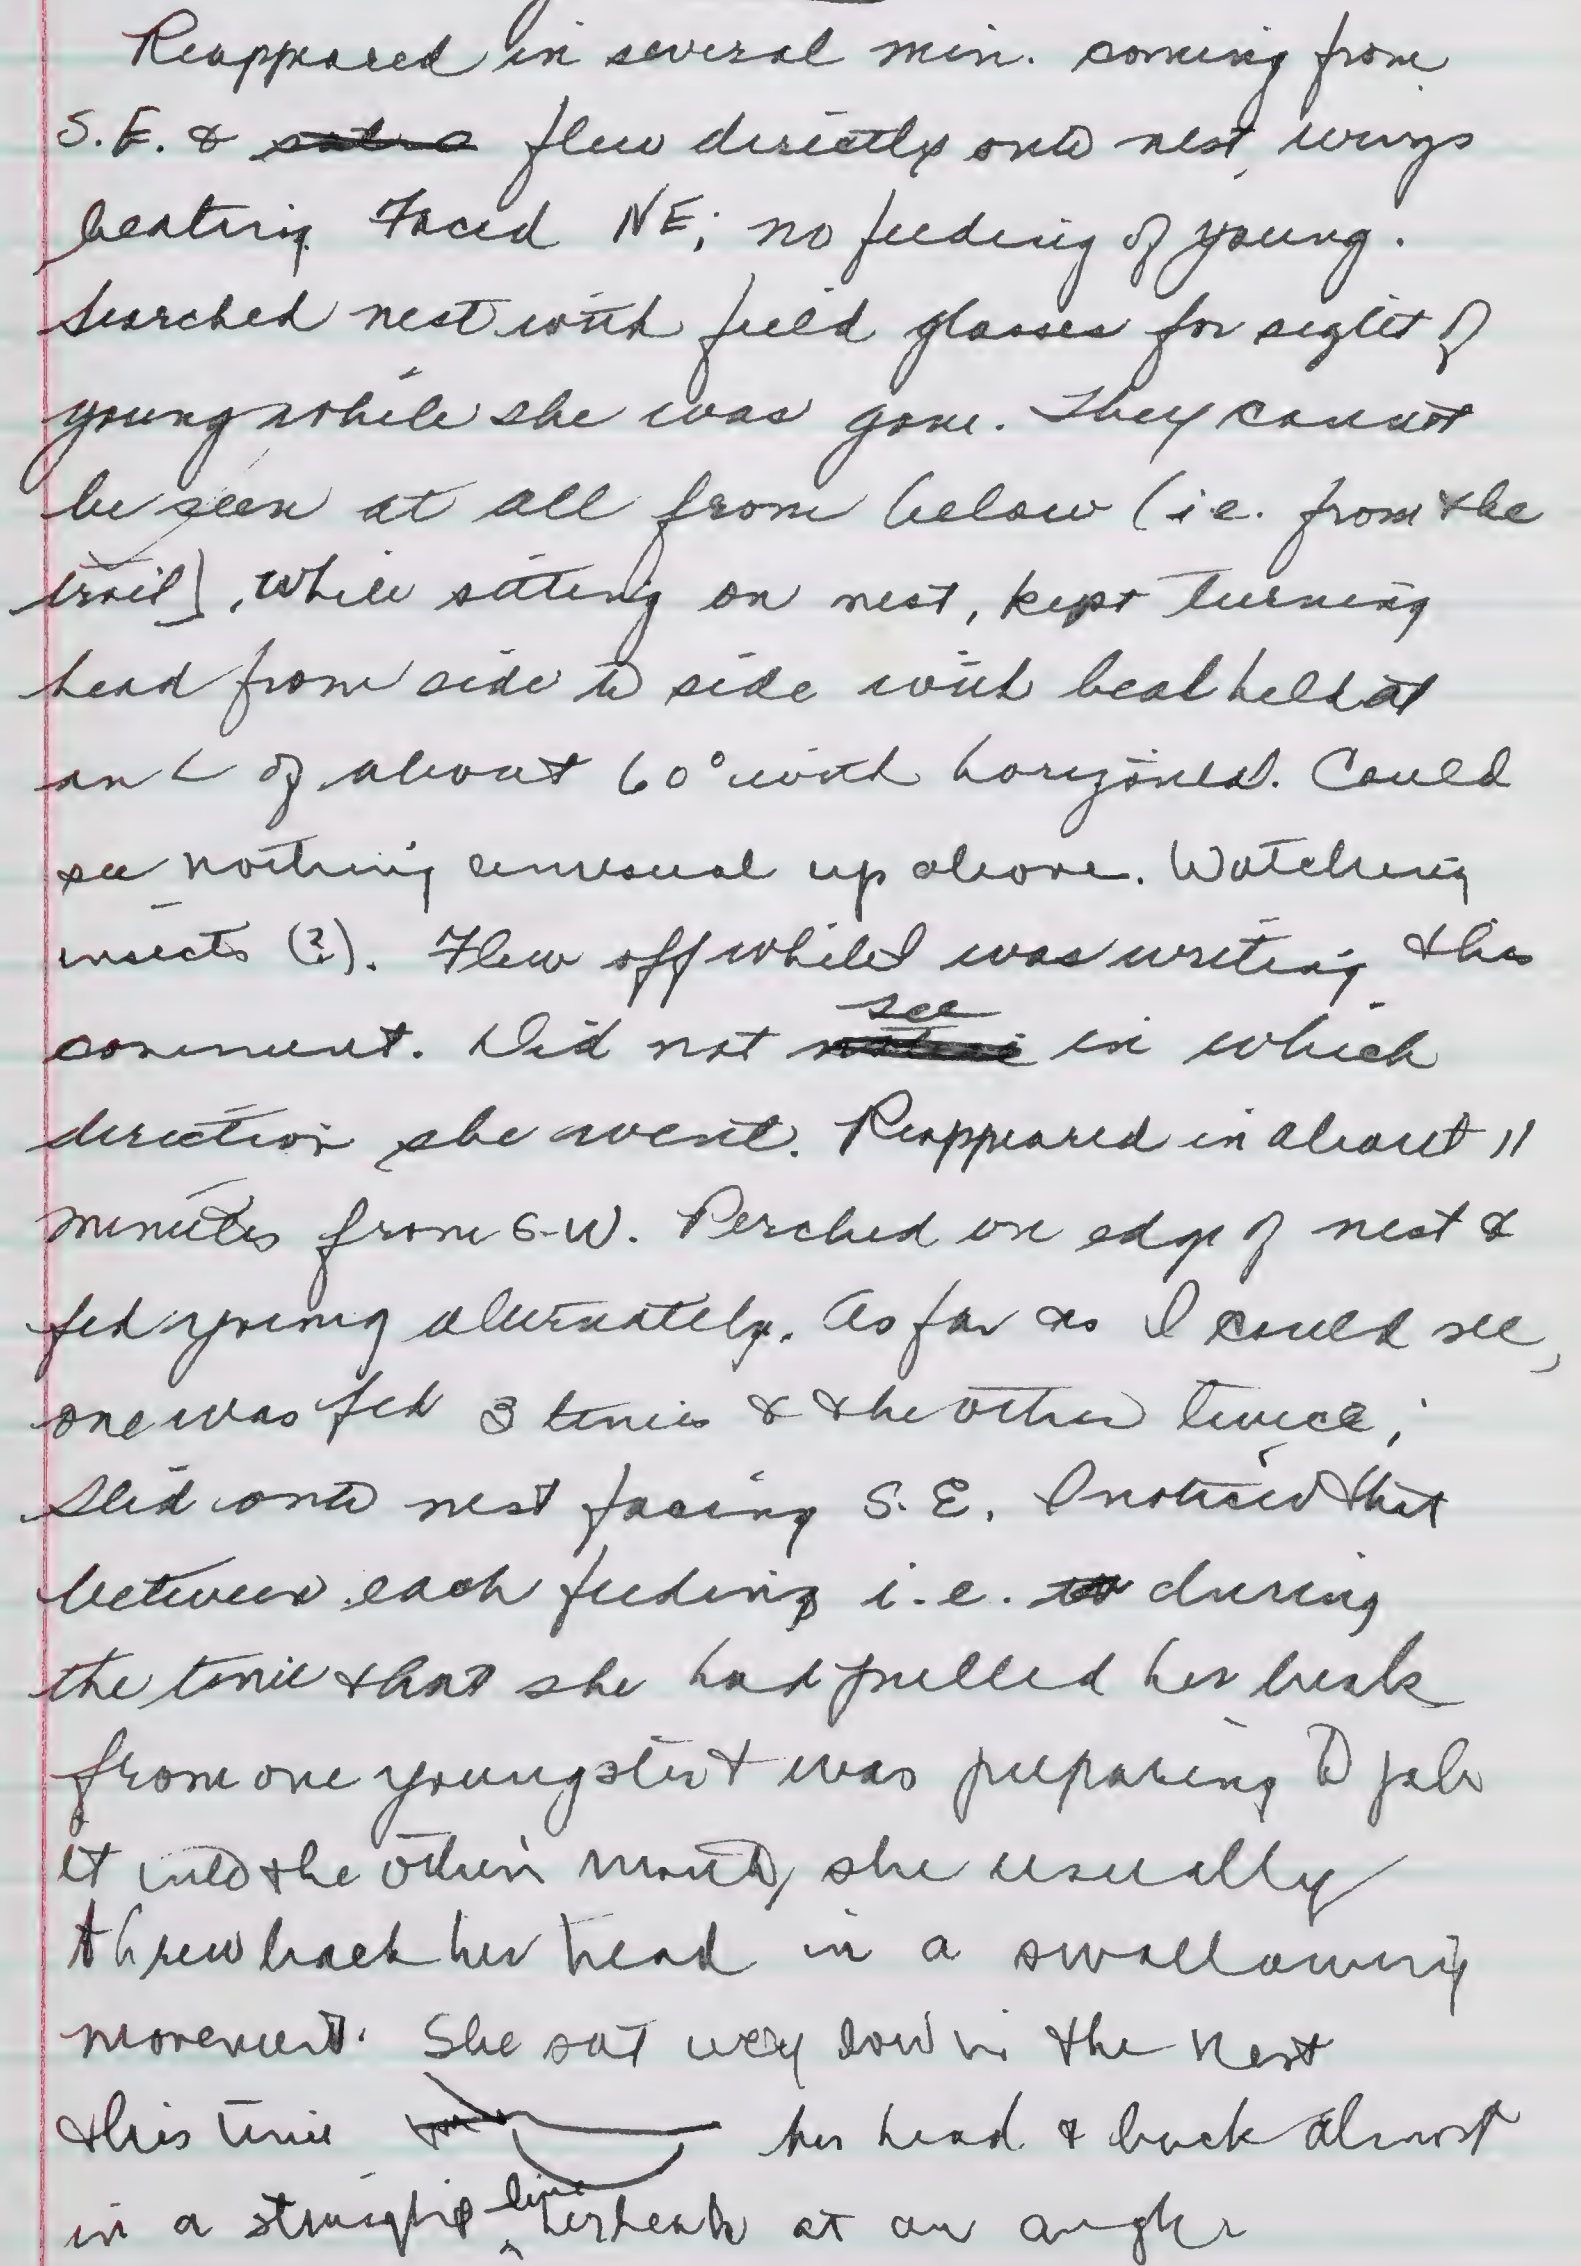 Reappeared in several min. coming from
S.E. & flew directly onto nest, wings
beating. Faced NE; no feeding of young.
Searched nest with field glasses for sight of
young while she was gone. They cannot
be seen at all from below (i.e. from the
trail]. While sitting on nest, kept turning
head from side to side with beak held at
an ∠ of about 60° with horizontal. Could
see nothing unusual up above. Watching
insects (?). Flew off while I was writing this
comment. Did not see in which
direction she went. Reappeared in about 11
minutes from S-W. Perched on edge of nest &
fed young alternately. As far as I could see,
one was fed 3 times & the other twice;
Slid onto nest facing S.E. I noticed that
between each feeding i.e. during
the time that she had pulled her beak
from one youngster & was preparing to jab
it into the other's mouth, she usually
threw back her head in a swallowing
movement. She sat very low in the nest
this time her head & back almost
in a straight line her beak at an angle